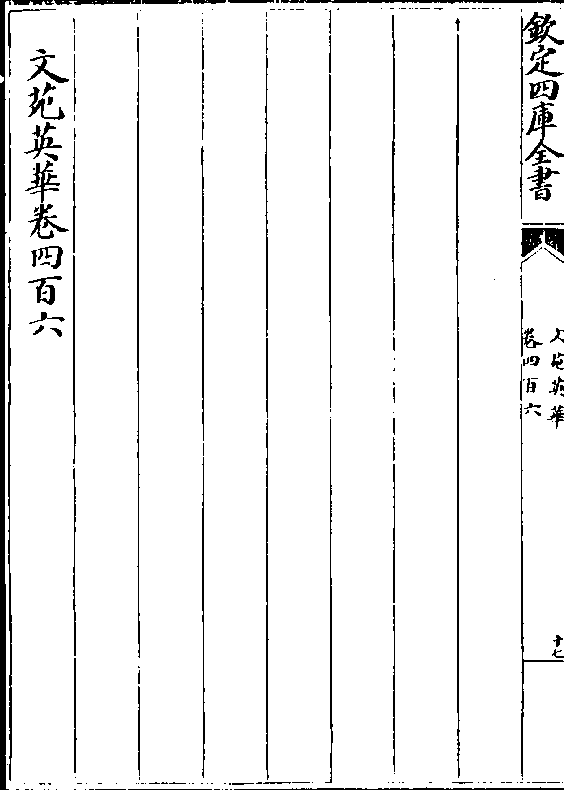 欽定四庫全書
文苑英華
卷四百六
十七
文苑英華卷四百六